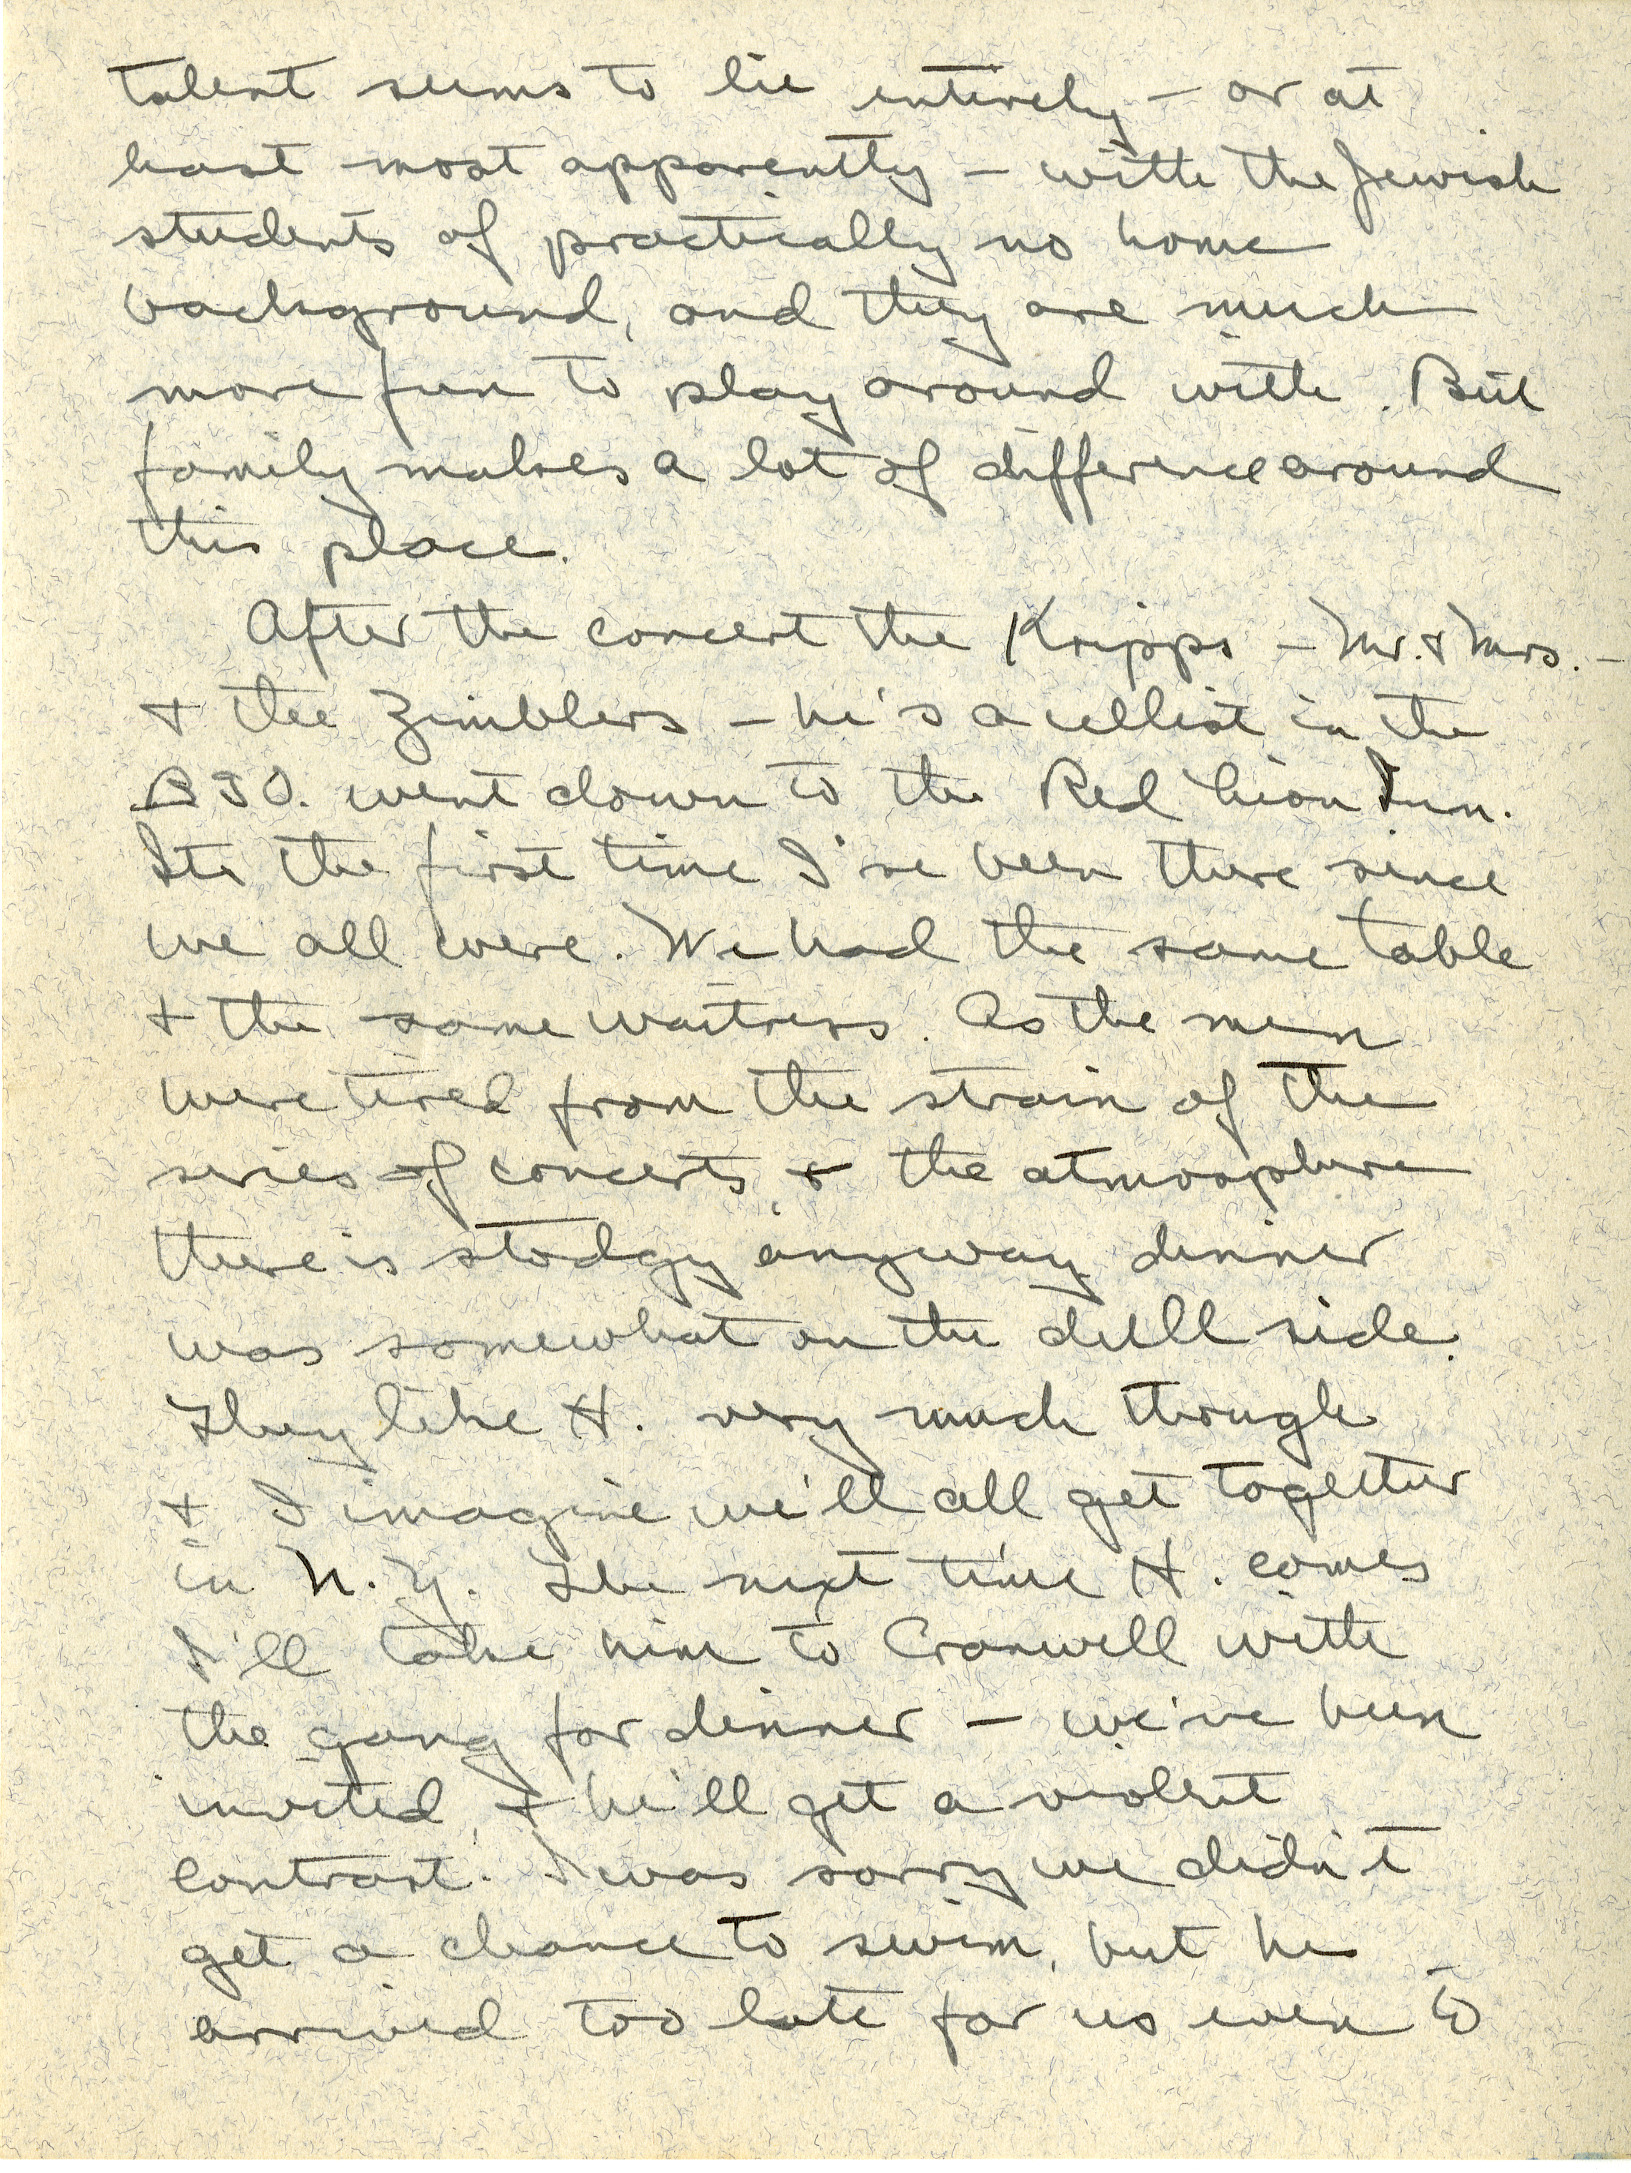 talent seems to lie entirely – or at
least most apparently – with the Jewish
students of practically no home
background, and they are much
more fun to play around with. But
family makes a lot of difference around
this place.
After the concert the Kripps – Mr. & Mrs. –
& the Zimblers – he's a cellist in the
BSO. went down to the Red Lion Inn.
Its the first time I've been there since
we all were. We had the same table
& the same waitress. As the men
were tired from the strain of the
series of concerts, & the atmosphere
there is stodgy anyway dinner
was somewhat on the dull side.
They like H. very much though
& I imagine we'll all get together
in N.Y. The next time H. comes
I'll take him to Cranwell with
the gang for dinner – we've been
invited, & he'll get a violent
contrast. I was sorry we didn't
get a chance to swim, but he
arrived too late for us even to